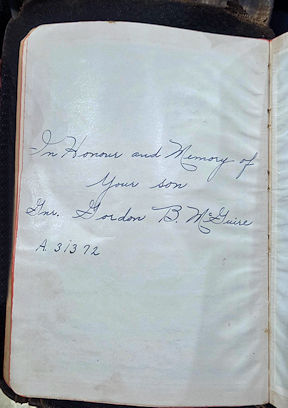 In Honour and Memory of
Your son
Gnr. Gordon B. McGuire
A. 31372